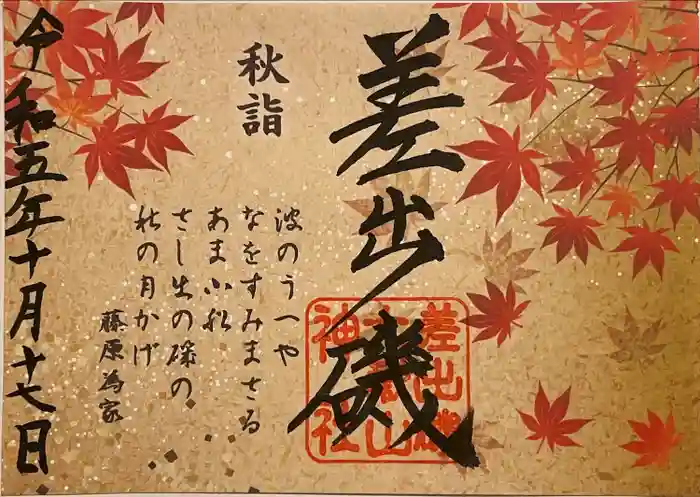 差出磯
差出磯
山
神社
秋詣
波のうへや
なをすみまさる
あま小
さし出の磯の
秋の月かげ
藤原為家
令和五年十月十七日